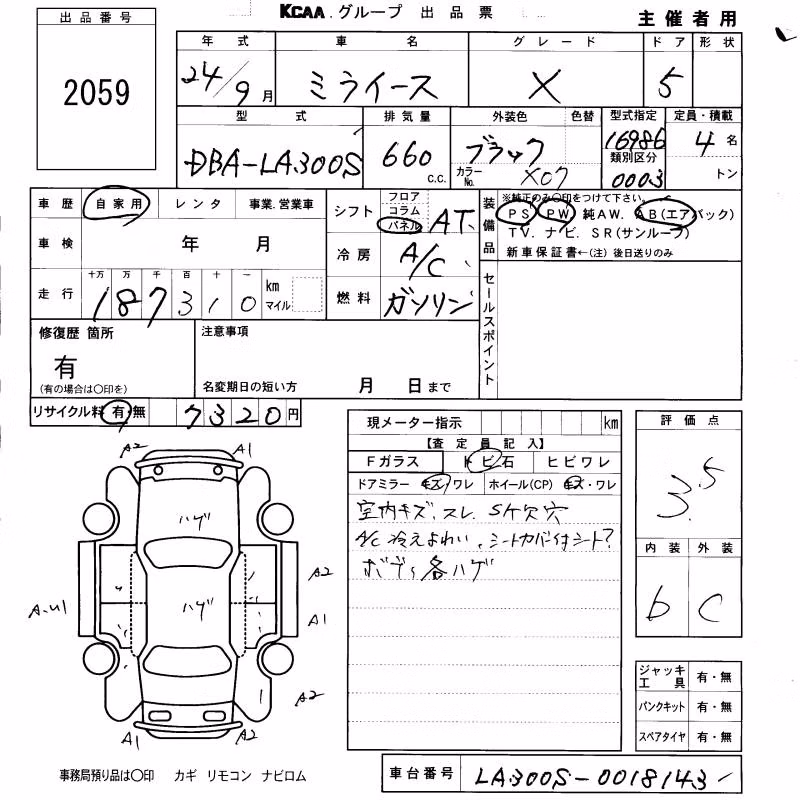 KCAA. グループ 出品票
主催者用
出品番号
2059
年式 車名 グレード ドア 形状
24/9月 ミライース X 5
型式 排気量 外装色 色替 型式指定 定員・積載
DBA-LA300S 660 c.c. ブラック カラーNo. X07 16986 4名
類別区分 0003 トン
車歴 自家用 レンタ 事業.営業車
シフト フロア コラム パネル AT
装備品 ※純正のみ〇印をつけて下さい。
PS PW 純AW. AB(エアバック)
TV. ナビ. SR(サンルーフ)
新車保証書←(注)後日送りのみ
車検 年 月
冷房 A/C
走行 十万 万 千 百 十 一
187310 km マイル
燃料 ガソリン
セールスポイント
修復歴 箇所 注意事項
有
(有の場合は〇印を) 名変期日の短い方 月 日まで
リサイクル料 有・無 7320円
現メーター指示 km
評価点
3.5
【査定員記入】
Fガラス トビ石 ヒビワレ
ドアミラー キズ/ワレ ホイール(CP) キズ・ワレ
室内キズ、スレ、Sケ欠穴
A/C 冷えよわい、シートカバー付シート?
ボディ各ハゲ
内装 外装
b C
A2 A1
ハゲ
A2
ハゲ
A1
A2
A1 A2
ジャッキ工具 有・無
パンクキット 有・無
スペアタイヤ 有・無
事務局預り品は〇印 カギ リモコン ナビロム
車台番号 LA300S-0018143